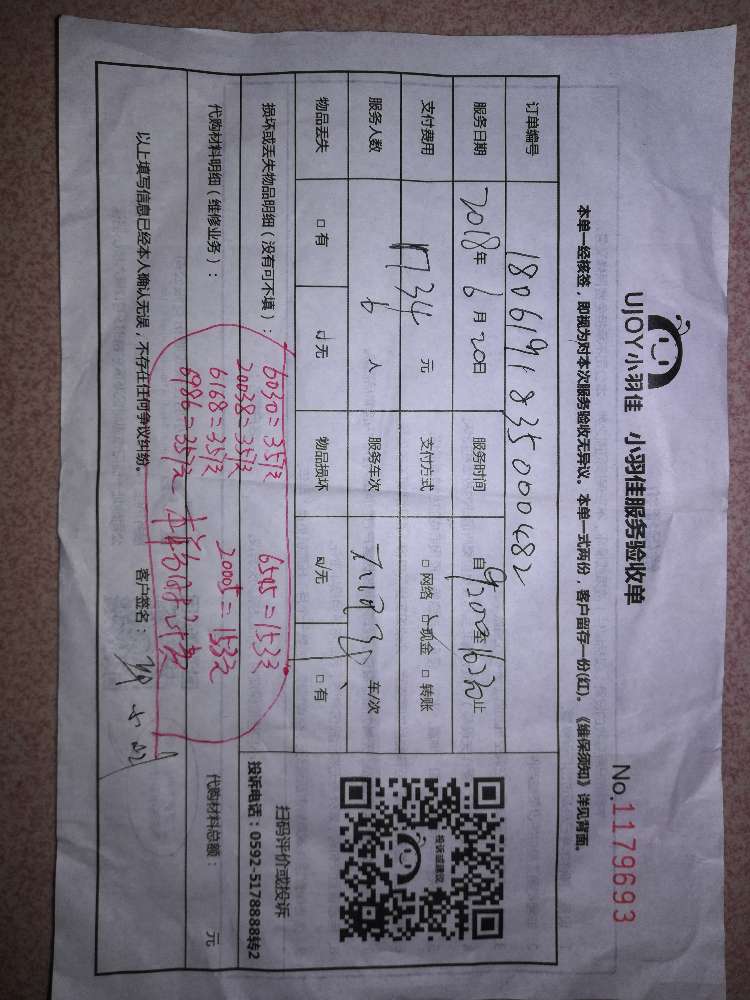 UJOY小羽佳 小羽佳服务验收单
No.1179693
本单一经核签，即视为对本次服务验收无异议。本单一式两份，客户留存一份(红)。《维保须知》详见背面。
订单编号 1806191835000482
服务日期 2018年6月20日 服务时间 自9:00至16:30止
支付费用 1734元 支付方式 □网络 ☑现金 □转账
服务人数 6人 服务车次 车/次
物品丢失 □有 ☑无 物品损坏 ☑无 □有
损坏或丢失物品明细（没有可不填）：
6030=357元 6505=153元
20038=357元
代购材料明细（维修业务）：
6168=357元 20005=153元
6986=357元
代购材料总额： 元
以上填写信息已经本人确认无误，不存在任何争议纠纷。 客户签名：
投诉或建议
扫码评价或投诉
投诉电话：0592-5178888转2